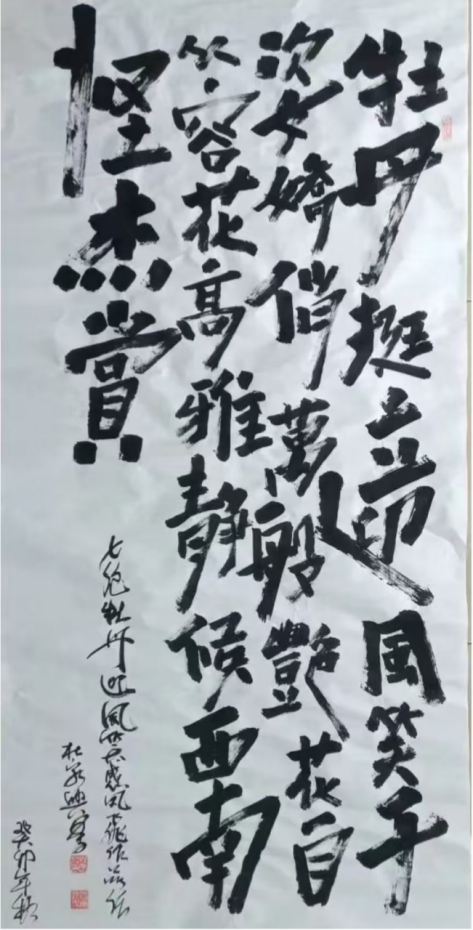 牡丹挺立迎風笑千
姿嬌俏萬般艷花自
从容花高雅静候西南
怪杰賞
七绝牡丹迎風
癸卯年秋